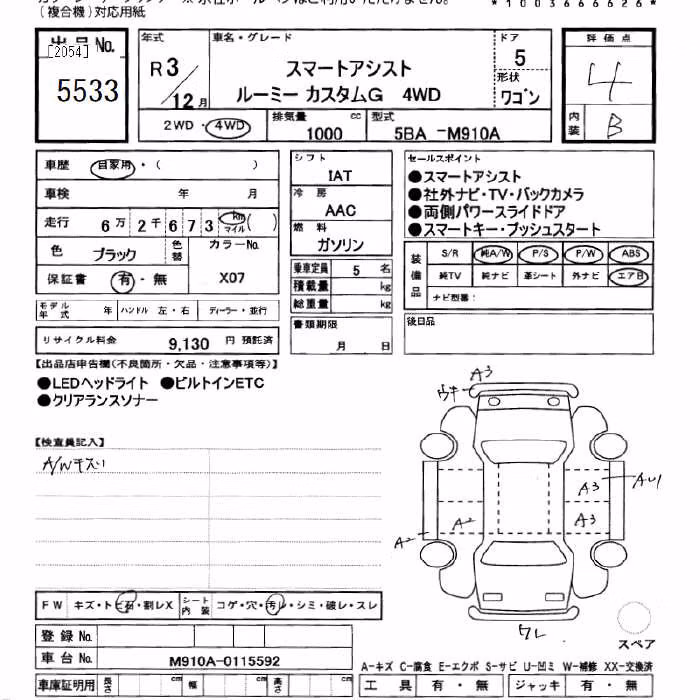 (複合機)対応用紙
*1003666626*
出品No.
[2054]
5533
年式
R3/12月
車名・グレード
スマートアシスト
ルーミー カスタムG 4WD
ドア
5
形状
ワゴン
評価点
4
内装
B
2WD・4WD
排気量
1000 cc
型式
5BA -M910A
車歴 自家用・( )
車検 年 月
走行 6万2千673 km マイル ( )
色 ブラック
色替
カラーNo.
X07
保証書 有・無
モデル年式 年 ハンドル 左・右 ディーラー・並行
リサイクル料金 9,130 円 預託済
シフト
IAT
冷房
AAC
燃料
ガソリン
乗車定員 5 名
積載量 kg
総重量 kg
書類期限
月 日
セールスポイント
●スマートアシスト
●社外ナビ・TV・バックカメラ
●両側パワースライドドア
●スマートキー・プッシュスタート
装備品
S/R 純A/W P/S P/W ABS
純TV 純ナビ 革シート 外ナビ エアB
ナビ型番:
後日品
【出品店申告欄(不良箇所・欠品・注意事項等)】
●LEDヘッドライト ●ビルトインETC
●クリアランスソナー
【検査員記入】
A/Wキズ
A3
A3
AU1
A3
A2
A2
ワレ
スペア
FW キズ・トビ石・割レX
シート内装 コゲ・穴・汚レ・シミ・破レ・スレ
登録No.
車台No. M910A-0115592
車庫証明用 長さ cm 幅 cm 高さ cm
A-キズ C-腐食 E-エクボ S-サビ U-凹ミ W-補修 XX-交換済
工具 有・無 ジャッキ 有・無